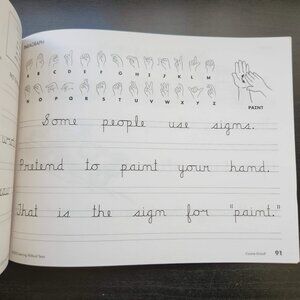 PARAGRAPH
A B C D E F G H I J K L M
N O P Q R S T U V W X Y Z
PAINT
Some people use signs.
Pretend to paint your hand.
That is the sign for "paint."
91